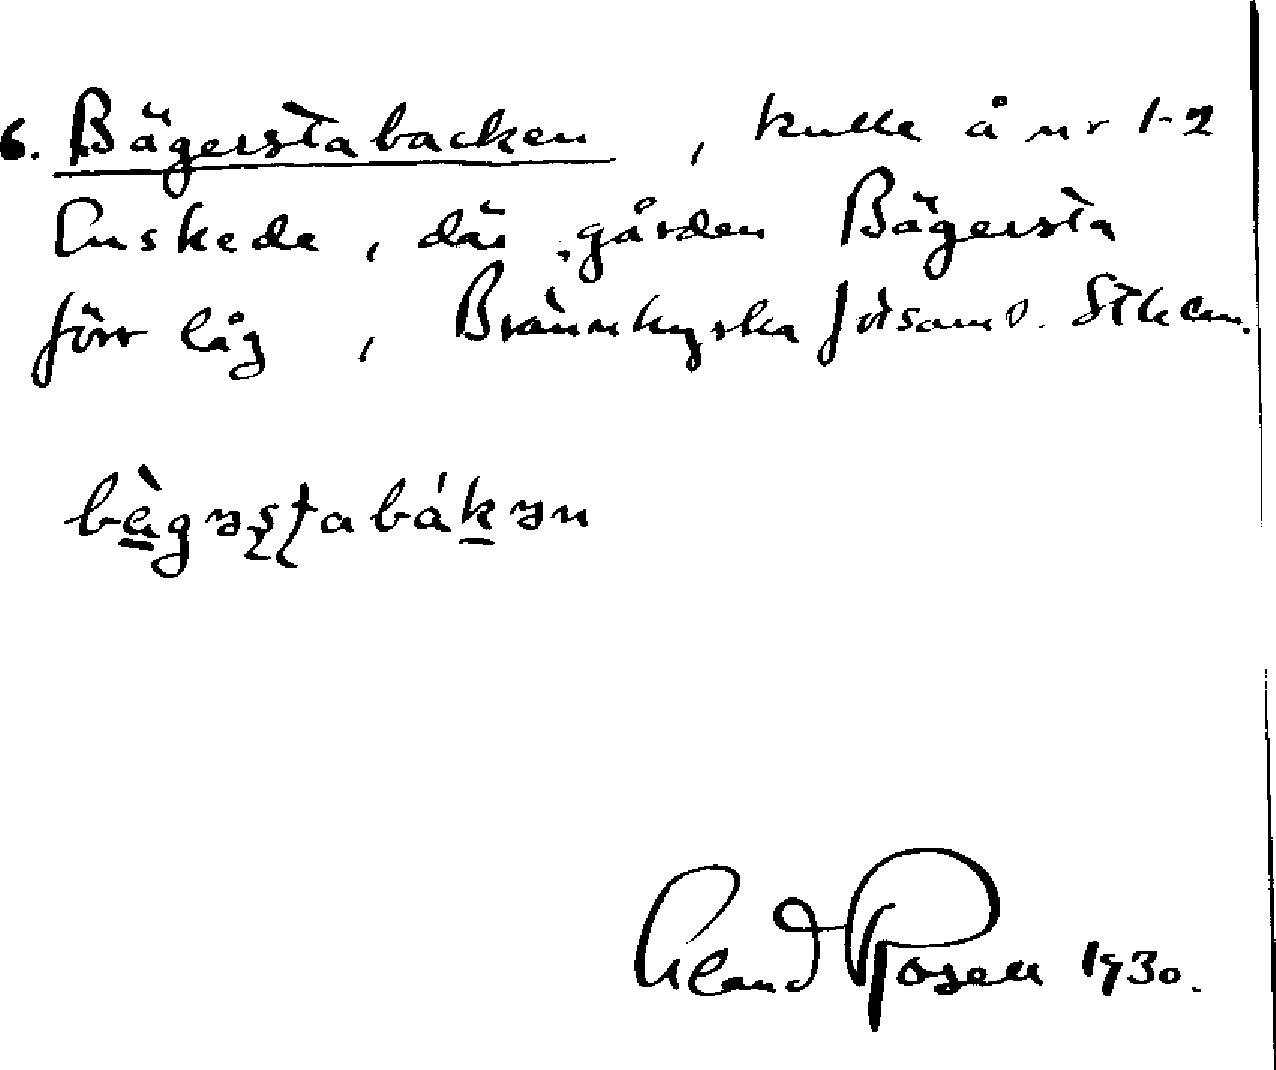 6. Bägerstabacken, kulle å nr 1-2
Enskede, där gården Bägersta
förr låg, Brännkyrka förs. Sthlm.
1930.